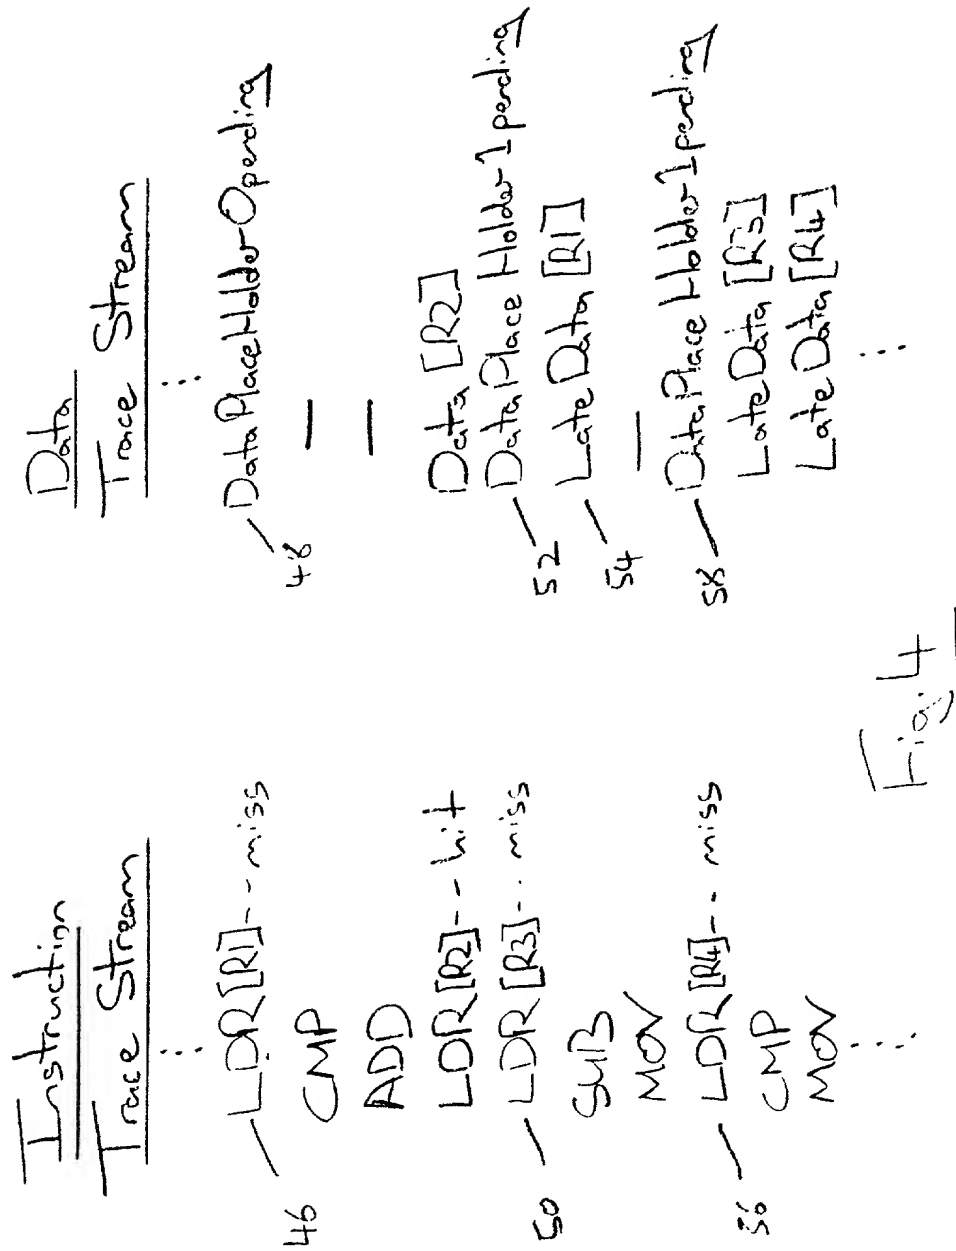 Instruction
Trace Stream
...
46 LDR [R1] -- miss
CMP
ADD
LDR [R2] -- hit
50 LDR [R3] -- miss
SUB
MOV
56 LDR [R4] -- miss
CMP
MOV
...
Data
Trace Stream
...
48 DataPlaceHolder 0 pending
—
—
Data [R2]
52 DataPlace Holder 1 pending
54 Late Data [R1]
—
58 DataPlace Holder 1 pending
Late Data [R3]
Late Data [R4]
...
Fig. 4